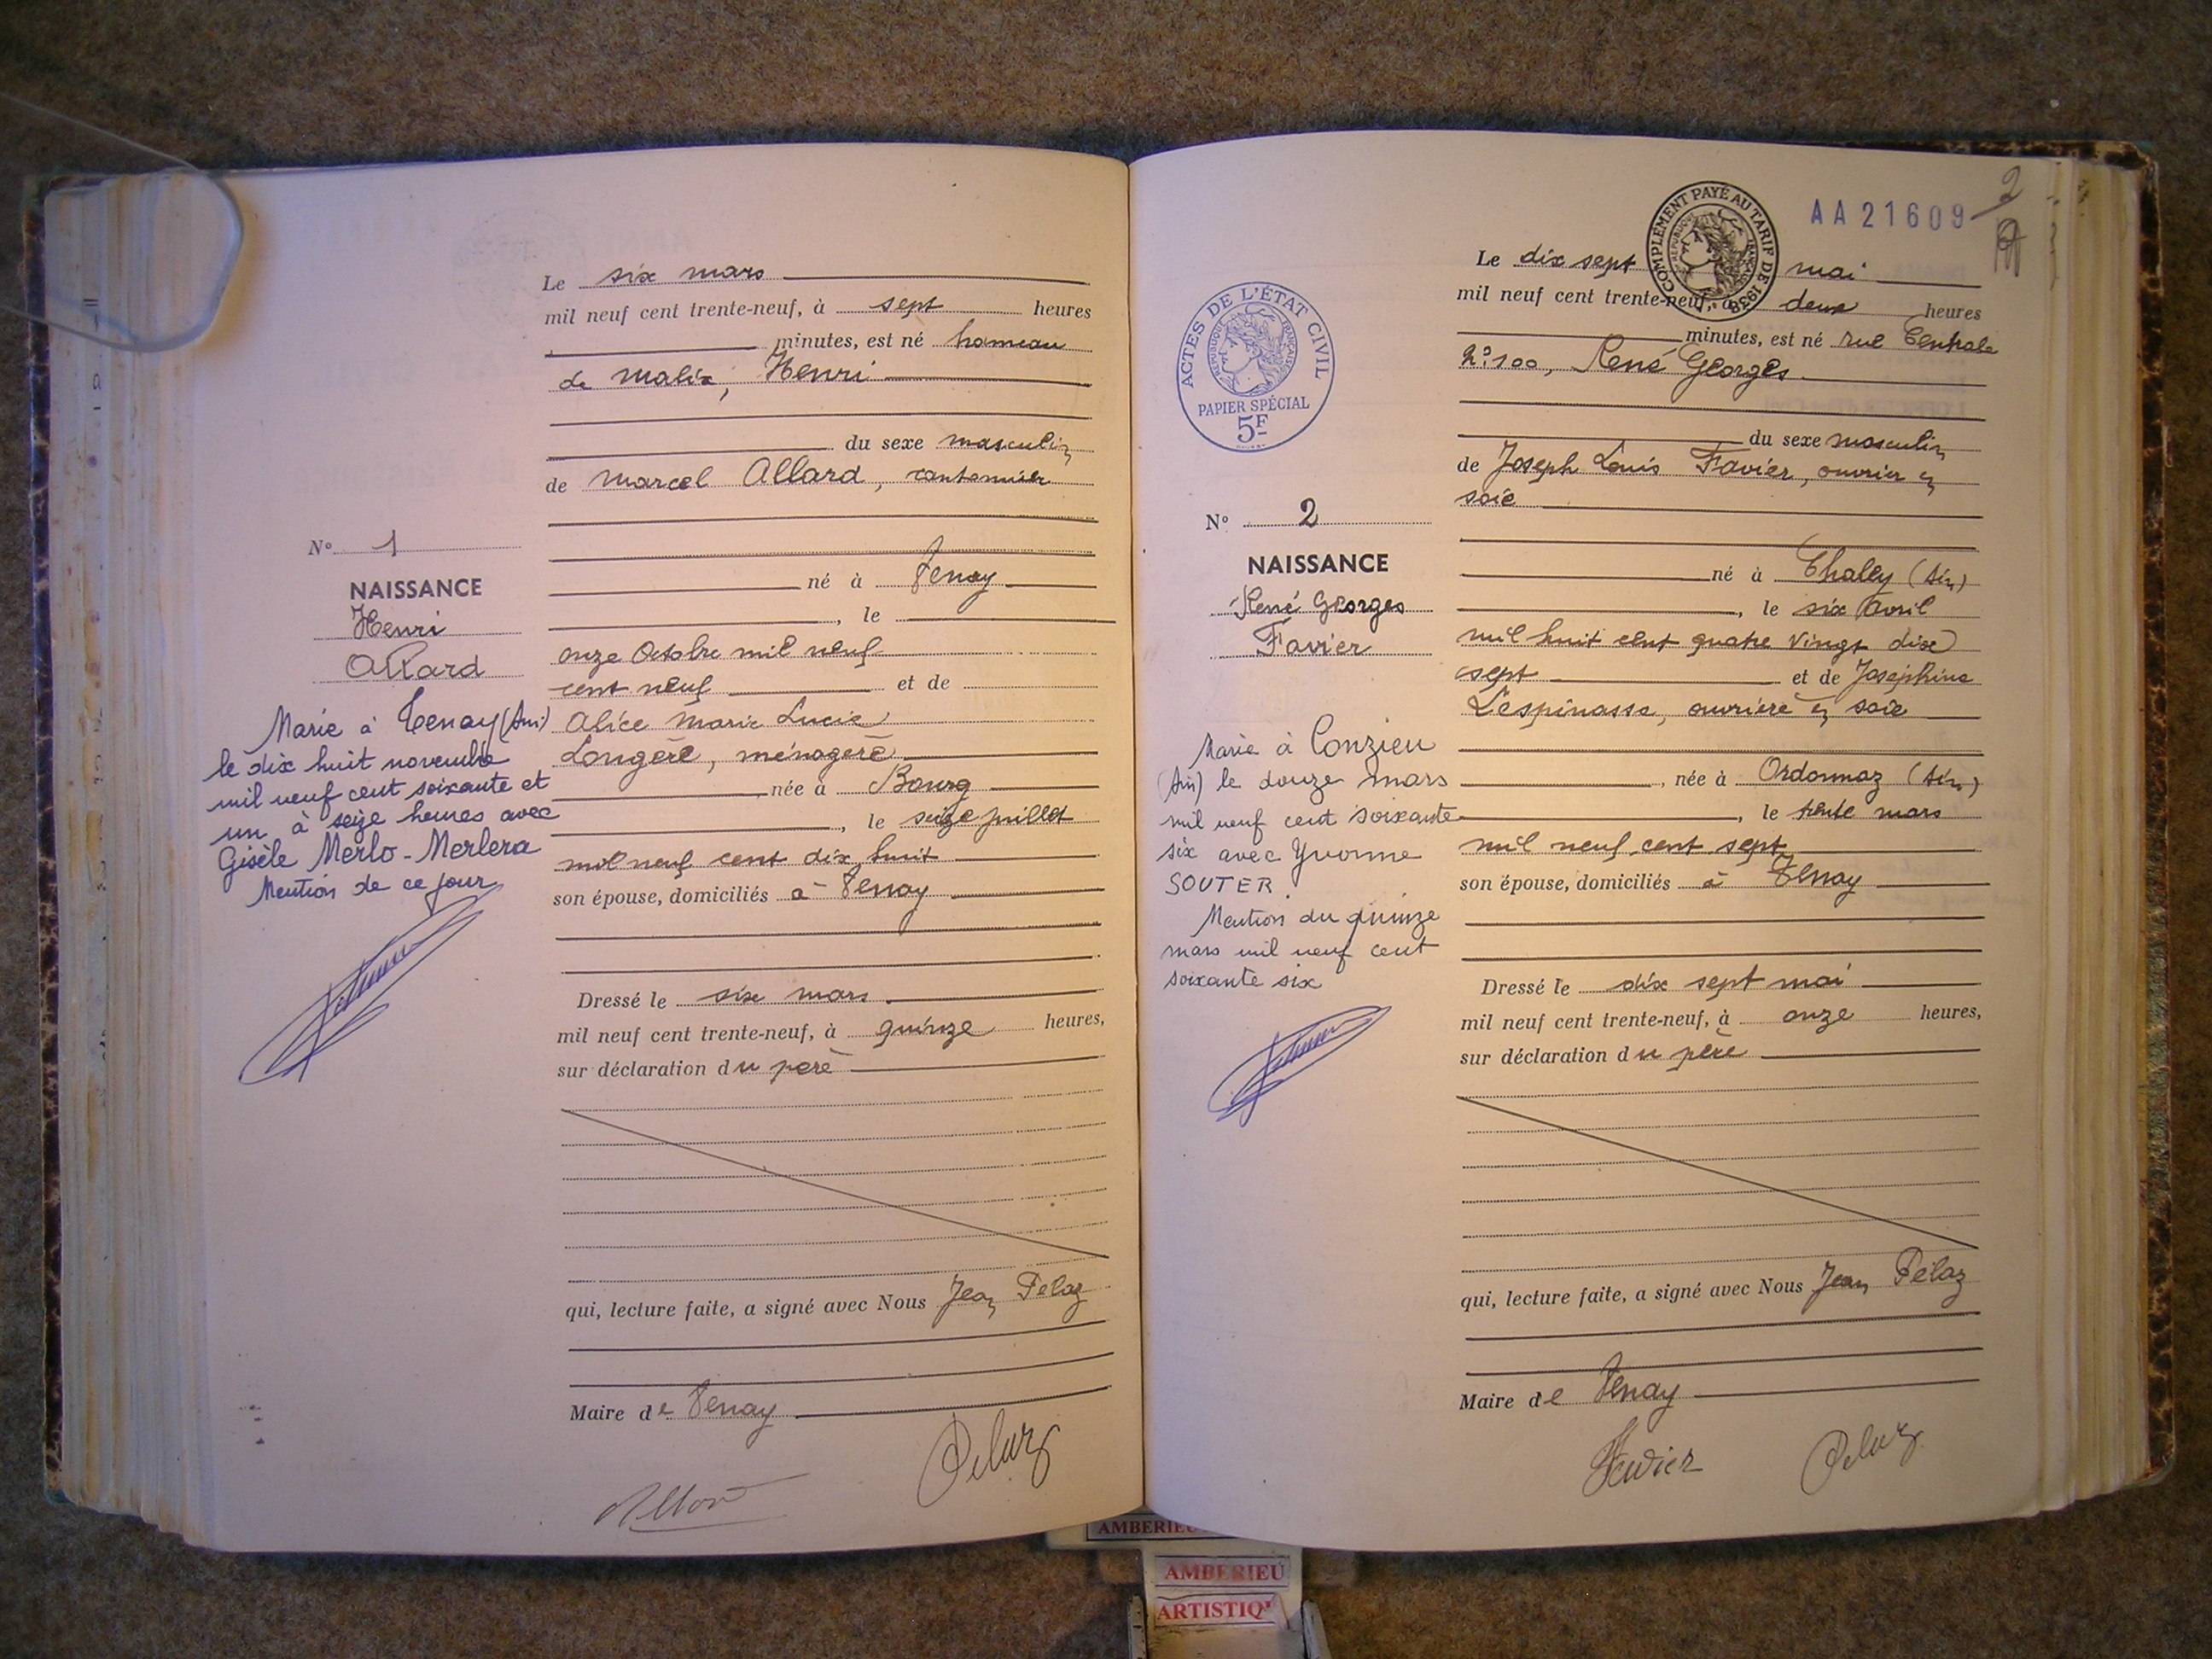 Le six mars
mil neuf cent trente-neuf, à sept heures
minutes, est né hameau
de Malix, Henri
du sexe masculin
de Marcel Allard, cantonnier
né à Tenay
, le
onze Octobre mil neuf
cent neuf et de
Alice Marie Lucie
Longère, ménagère
née à Bourg
, le seize juillet
mil neuf cent dix huit
son épouse, domiciliés à Tenay
Dressé le six mars
mil neuf cent trente-neuf, à quinze heures,
sur déclaration du père
qui, lecture faite, a signé avec Nous Jean Pélaz
Maire de Tenay
Pelaz
N° 1
NAISSANCE
Henri
Allard
Marié à Tenay (Ain)
le dix huit novembre
mil neuf cent soixante et
un à seize heures avec
Gisèle Merlo-Merlera
Mention de ce jour
AA21609
2
COMPLÉMENT PAYÉ AU TARIF DE 1938
RÉPUBLIQUE FRANÇAISE
Le dix sept mai
mil neuf cent trente-neuf, à deux heures
minutes, est né rue Centrale
n° 100, René Georges
du sexe masculin
de Joseph Louis Favier, ouvrier en
soie
né à Chaley (Ain)
, le six Avril
mil huit cent quatre vingt dix
sept et de Joséphine
Lespinasse, ouvrière en soie
, née à Ordonnaz (Ain)
, le trente mars
mil neuf cent sept
son épouse, domiciliés à Tenay
Dressé le dix sept mai
mil neuf cent trente-neuf, à onze heures,
sur déclaration du père
qui, lecture faite, a signé avec Nous Jean Pélaz
Maire de Tenay
Favier Pelaz
ACTES DE L'ÉTAT CIVIL
RÉPUBLIQUE FRANÇAISE
PAPIER SPÉCIAL
5F
N° 2
NAISSANCE
René Georges
Favier
Marié à Conzieu
(Ain) le douze mars
mil neuf cent soixante
six avec Yvonne
SOUTER
Mention du quinze
mars mil neuf cent
soixante six
AMBERIEU
AMBERIEU
ARTISTIQ